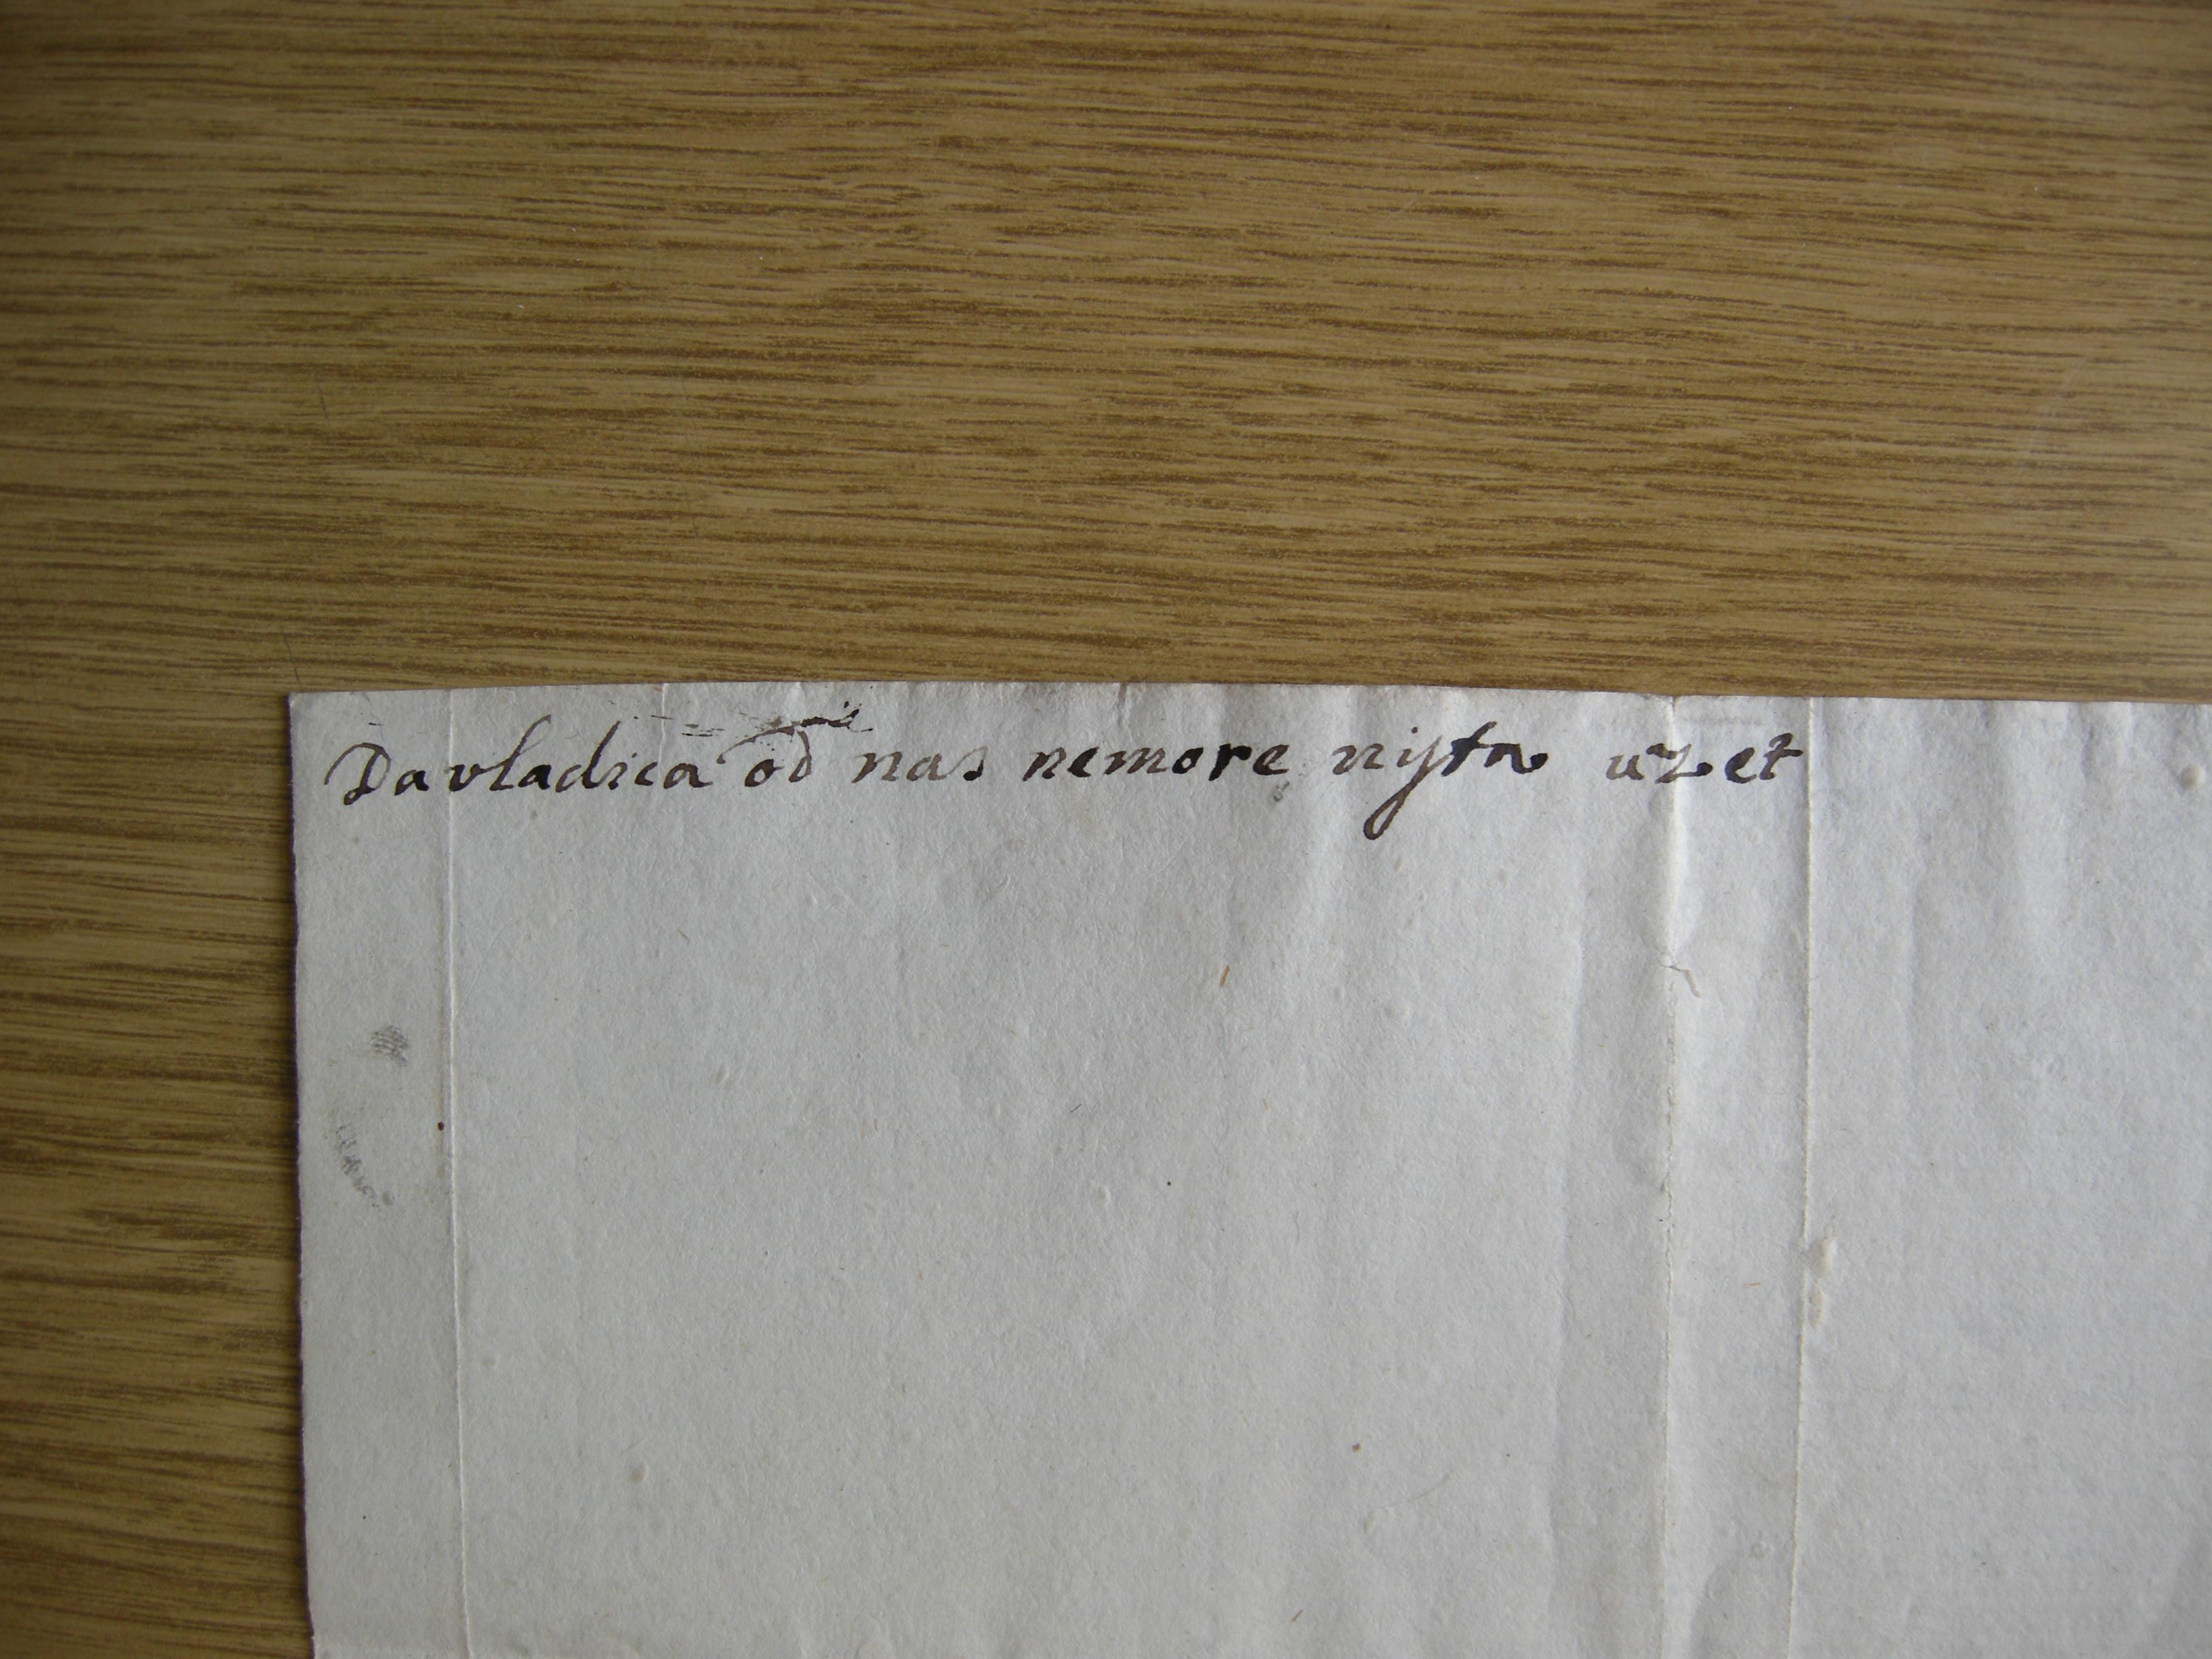 Da vladica od nas nemore nista uzet